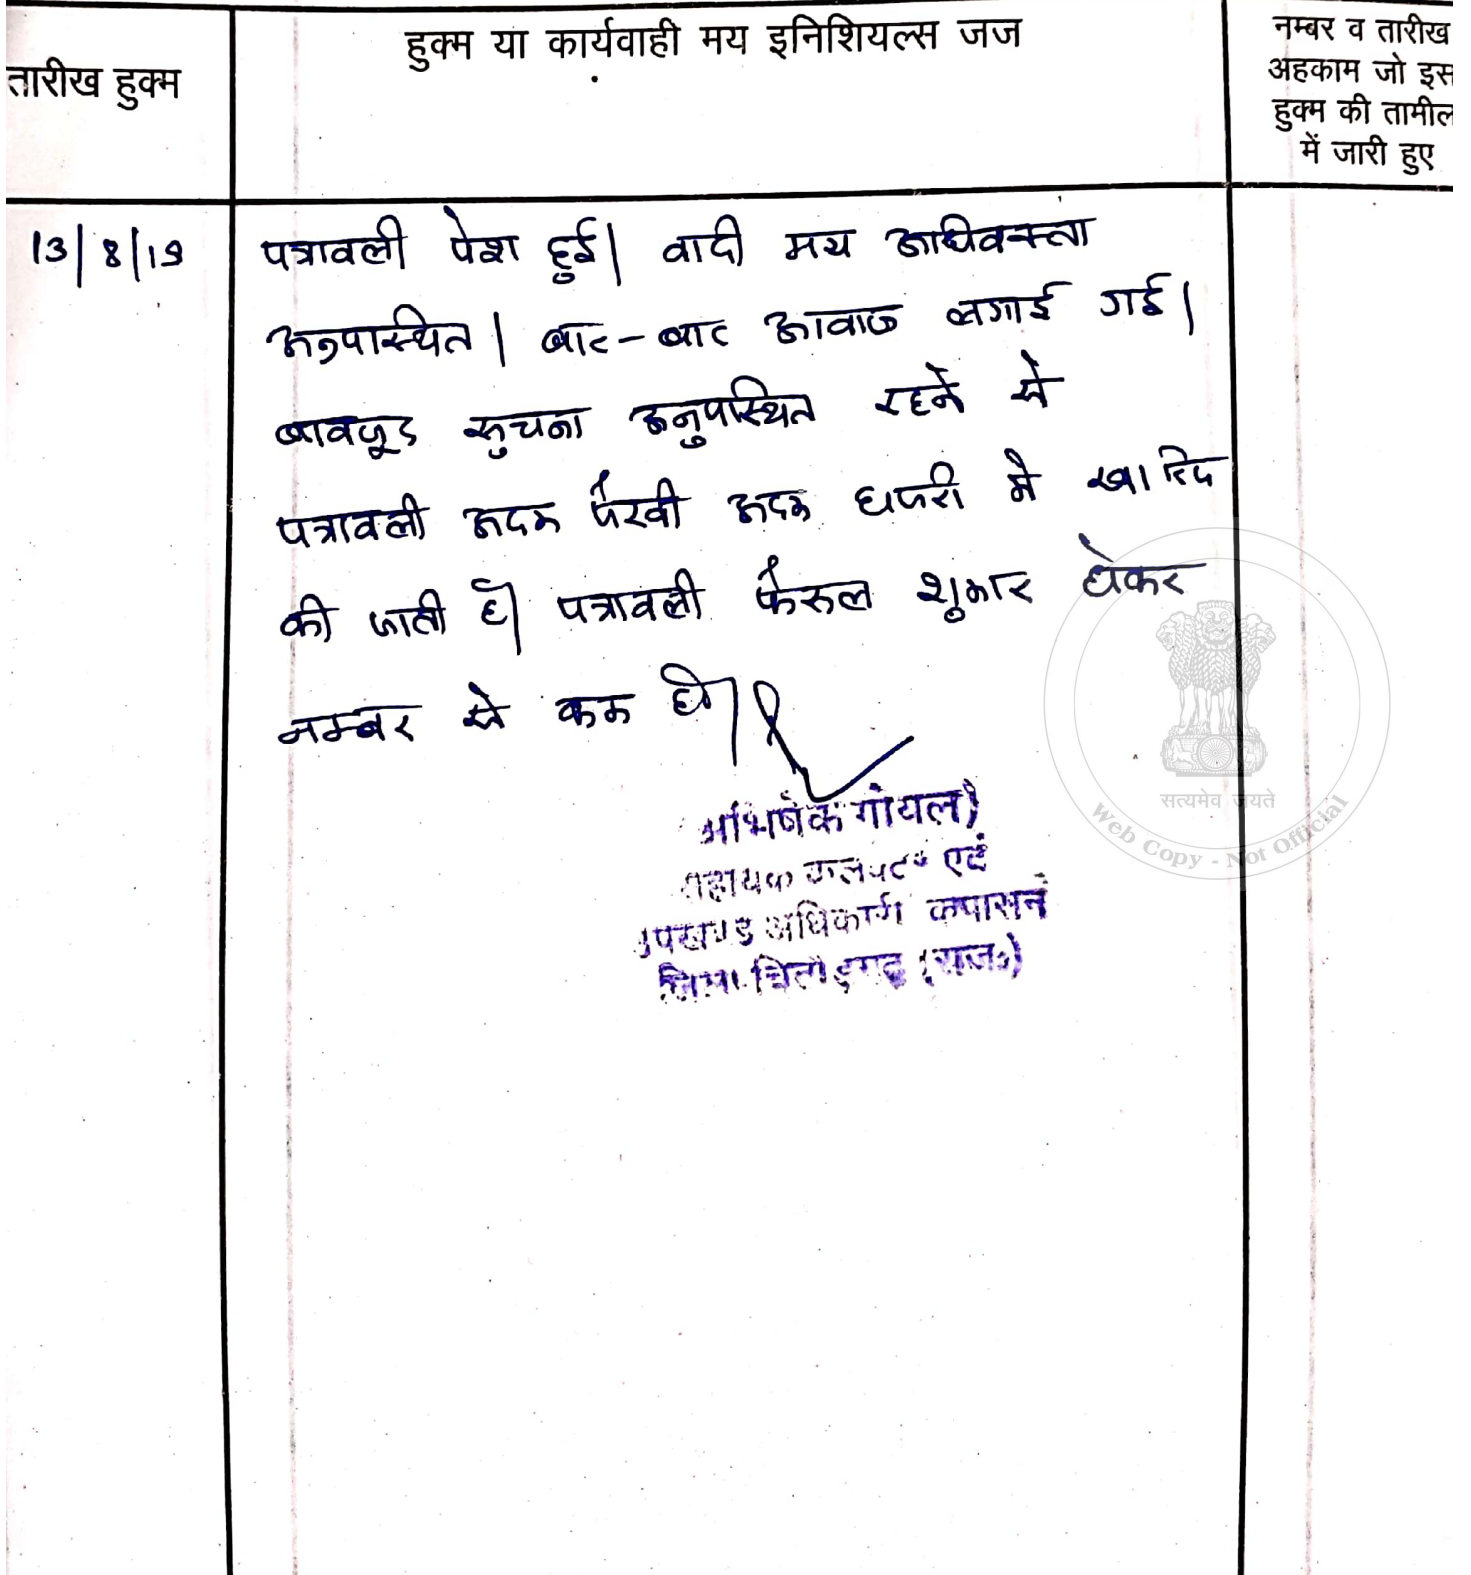 तारीख हुक्म
हुक्म या कार्यवाही मय इनिशियल्स जज
नम्बर व तारीख
अहकाम जो इस
हुक्म की तामील
में जारी हुए
13/8/19
पत्रावली पेश हुई। वादी मय अधिवक्ता
अनुपस्थित। बार-बार आवाज लगाई गई।
बावजूद सुचना अनुपस्थित रहने से
पत्रावली अदम पैरवी अदम हाजरी मे खारिज
की जाती है। पत्रावली फैसल शुमार होकर
नम्बर से कम हो।
अभिषेक गोयल)
सहायक कलक्टर एवं
उपखण्ड अधिकारी कपासन
जिला चित्तौड़गढ़ (राज०)
सत्यमेव जयते
Web Copy - Not Official